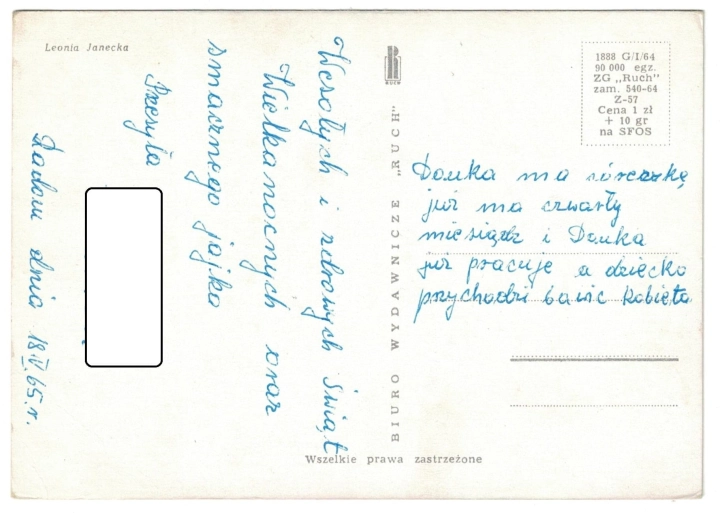 Leonia Janecka
Wesołych i zdrowych Świąt
Wielkanocnych oraz
smacznego jajka
Przesyła
Radom dnia 18 IV 65.r.
RUCH
BIURO WYDAWNICZE „RUCH"
1888 G/I/64
90 000 egz.
ZG „Ruch"
zam. 540-64
Z-57
Cena 1 zł
+ 10 gr
na SFOS
Danka ma córeczkę
już ma czwarty
miesiąc i Danka
już pracuje a dziecko
przychodzi bawić kobieta
Wszelkie prawa zastrzeżone